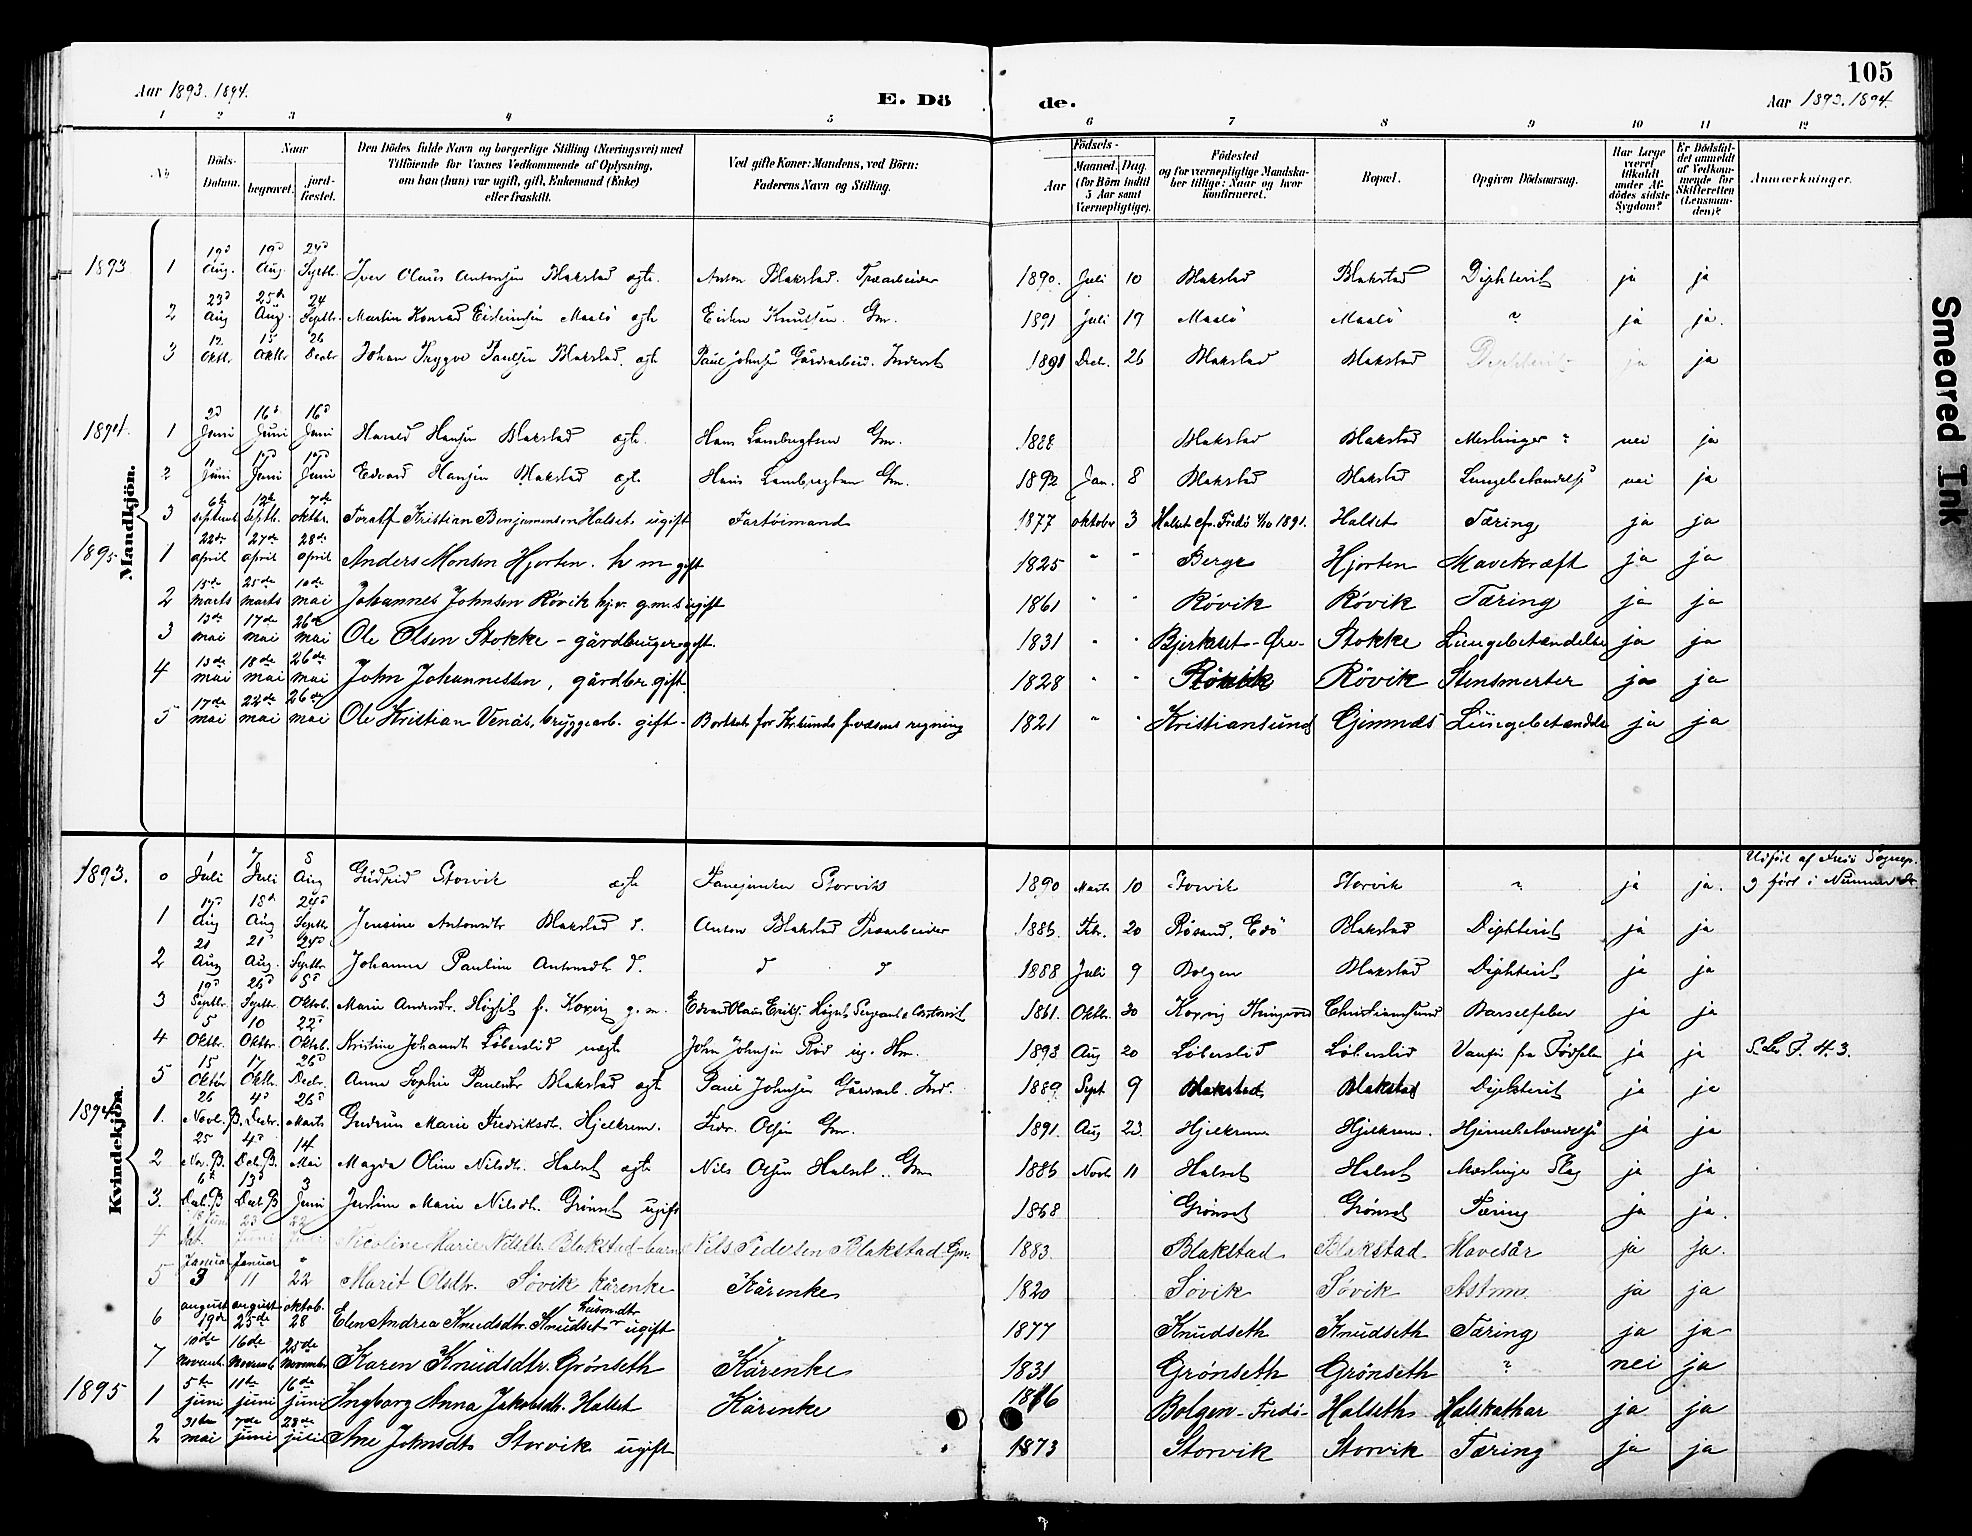 105
Aar 1893. 1894.
E. Dö
de.
Aar 1893. 1894.
1 2 3 4 5 6 7 8 9 10 11 12
No
Döds-Datum.
Naar
begravet.
jord-fæstet.
Den Dödes fulde Navn og borgerlige Stilling (Næringsvei) med
Tilföiende for Voxnes Vedkommende af Oplysning,
om han (hun) var ugift, gift, Enkemand (Enke)
eller fraskilt.
Ved gifte Koner: Mandens, ved Börn:
Faderens Navn og Stilling.
Födsels-
Aar
Maaned. Dag.
(for Börn indtil
5 Aar samt
Værnepligtige).
Födested
og for værnepligtige Mandska-
ber tillige: Naar og hvor
konfirmeret.
Bopæl.
Opgiven Dödsaarsag.
Har Læge
været
tilkaldt
under Af-
dödes sidste
Sygdom?
Er Dödsfal-
det anmeldt
af Vedkom-
mende for
Skifteretten
(Lensman-
den)?
Anmærkninger.
Mandkjön.
1893 1 19d Aug. 19d Aug. 24d Septbr. Iver Olaus Antonsen Blakstad ægte. Anton Blakstad. Træarbeider 1890. Juli 10 Blakstad Blakstad Diphterit ja ja
2 23d Aug 25d Aug. 24 Septbr. Martin Konrad Maalö ægte Knutsen. Gm. 1891 Juli 19 Maalö Maalö " ja ja.
3 12 Oktbr. 15 Oktbr 26 Decbr Johan Trygve Paulsen Blakstad. ægte Paul Johnsen Gårdarbeid. Inderst 1891 Decbr. 26 Blakstad Blakstad Diphterit ja ja
1894. 1 2d Juni 16d. Juni 16d Juni Harald Hansen Blakstad ægte. Hans Lambregtsen Gm. 1888 Blakstad Blakstad Meslinger " nei ja
2 11 Juni 17d Juni 17d Juni Edvard Hansen Blakstad ægte Hans Lambregtsen Gm. 1892 Jan. 8 Blakstad Blakstad Lungebetændelse nei ja
3 6te septemb. 12te septb. 7de oktbr. Toralf Kristian Benjaminsen Halset ugift Fartöimand 1877 oktober 3 Halset Fredö 1891. Halset Tæring ja ja
1895 1 22de april 27de april 28de april Anders Monsen Hjorten. h m gift 1825 " " Berge Hjorten Mavekræft ja ja
2 15de marts 25de marts 10de mai Johannes Johnsen Rövik hjv. g.m.s ugift 1861 " " Rövik Rövik Tæring ja ja
3 13de mai 17de mai 26de mai Ole Olsen Stokke - gårdbruger gift. 1831 " " Bjerkeset - Öre- Stokke Lungebetændelse ja ja
4 13de mai 18de mai 26de mai John Johannessen, gårdbr gift. 1828 " " Rövik Rövik Stensmerter ja ja
5 17de mai 22de mai 26de mai Ole Kristian Venås, bryggearb. gift - Bortsat for Krsunds fvæsens regning 1821 " " Kristiansund Gimnæs Lungebetændelse ja ja
Kvindekjön.
1893. 0 1 Juli 7 Juli 5 Aug Gudrid Storvik ægte Storvik 1890 Marts 10 Storvik Storvik " ja ja. Udfört af Fredö Sognep.
g fört i Nummer
1 17d Aug 18d Aug 24d Septbr Jensine Antonsdtr Blakstad d. Anton Blakstad Træarbeider 1886. Febr. 20 Rösand, Edö Blakstad Diphterit ja ja
2 21 Aug 21 Aug. 24d Septbr Johanna Pauline Antonsdtr d. d d 1888 Juli 9 Bolgen Blakstad Diphterit ja ja
3 19d Septbr. 26d Septbr. 5d Oktob. Marie Andersdtr. Högset f. Korvig g.m. Edvard Olaus Eriks. Högset Sergeant 1861. Oktbr. 30 Korvig Christiansund Barselfeber ja ja
4 5 Oktbr. 10 Oktbr. 22d Oktob. Kristine Johannedtr Löberslid uægte John Johnsen Röd ug. Hm. 1893 Aug 20 Löberslid Löberslid fra Födselen ja ja
5 15 Oktbr 17 Oktb. 26d Decbr. Anna Sophie Paulsdtr Blakstad ægte Paul Johnsen Gårdarb. Ind. 1889. Sept 9 Blakstad Blakstad Diphterit ja ja
1894 1. 26 Novb. 4d Decbr. 26d Marts Gudrun Marie Fredriksdtr. Hjelkrem. Fredr. Olsen Gm. 1891. Aug 23 Hjelkrem Hjelkrem. ja ja
2 25 Nov. 4d Dcb. 14 Mai Magda Oline Nilsdtr. Halset ægte Nils Olsen Halset. Gm 1886 Novb 11 Halset Halset Meslinge ja ja
3. 6te Decb. 13d Decb 3 Juni Justine Marie Nilsdtr. Grönset ugift 1868 Grönset Grönset Tæring ja ja.
4 Juni 23 Juni 22 Juli Nicoline Marie Nilsdtr. Blakstad - barn Nils Pedersen Blakstad Gm. 1883. Blakstad Blakstad. Mavesår ja ja.
5 Januar 3 Januar 11 " 22 Marit Olsdtr. Sövik kårenke Kårenke 1820 Sövik Sövik Astma ja ja
6 august 19de august 25de oktob. 28 Elen Andrea Knudsdtr. Knudset ugift 1877 Knudseth Knudseth Tæring ja ja
7 10de novemb. 16de novemb. 25de november Karen Knudsdtr. Grönseth Kårenke 1831 Grönseth Grönseth " nei ja
1895 1 5te juni 11te juni 16de juni Ingborg Anna Jakobsdtr. Halset Kårenke 1816 Bolgen - Fredö- Halseth Halskathar ja ja
2 31te mai 7de juni 28de juli Ane Johnsdtr Storvik ugift 1873 Storvik Storvik Tæring ja ja
Smeared Ink